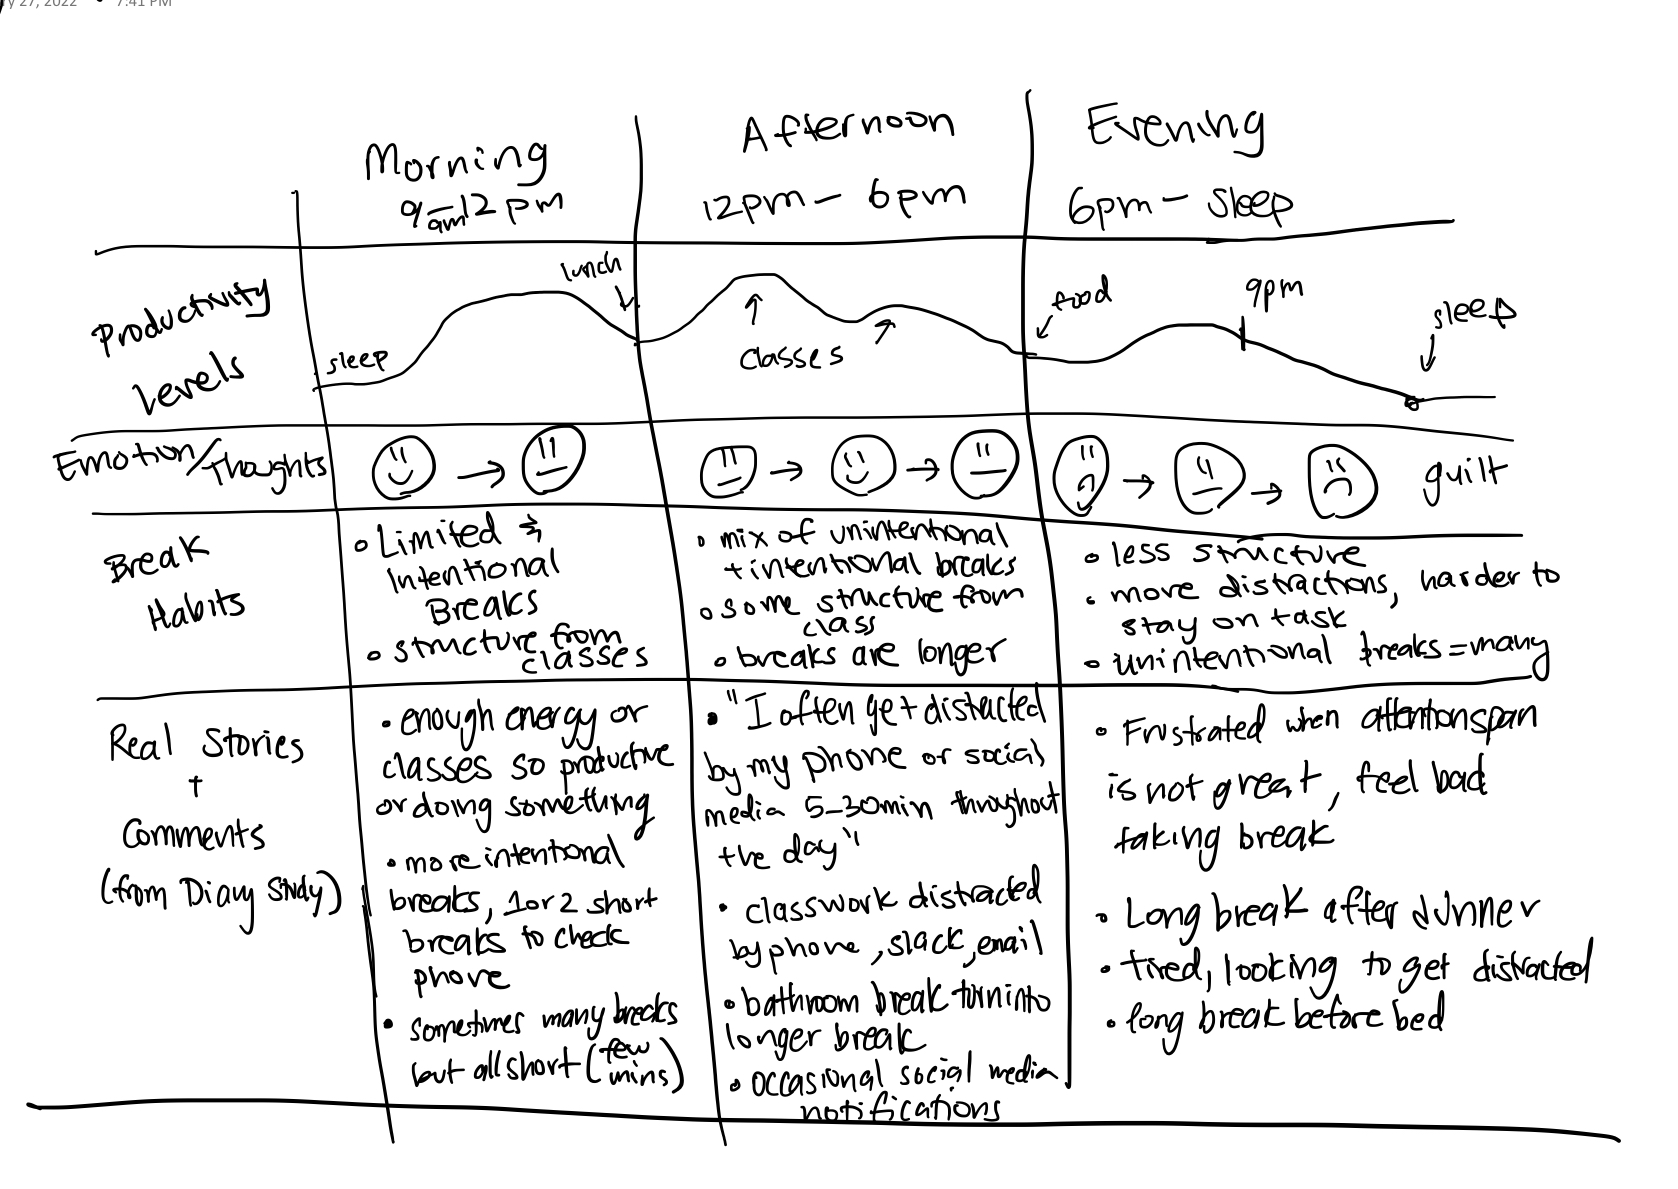 27, 2022 • 7:41 PM
Morning
9am-12pm
Afternoon
12pm - 6pm
Evening
6pm - sleep
Productivity
Levels
sleep
lunch
classes
food
9pm
sleep
Emotion/Thoughts
guilt
Break
Habits
• Limited &
Intentional
Breaks
• structure from
classes
• mix of unintentional
+ intentional breaks
• some structure from
class
• breaks are longer
• less structure
• more distractions, harder to
stay on task
• unintentional breaks = many
Real Stories
+
Comments
(from Diary Study)
• enough energy or
classes so productive
or doing something
• more intentional
breaks, 1 or 2 short
breaks to check
phone
• sometimes many breaks
but all short (few
mins)
• "I often get distracted
by my phone or social
media 5-30min throughout
the day"
• classwork distracted
by phone, slack, email
• bathroom break turn into
longer break
• occasional social media
notifications
• Frustrated when attention span
is not great, feel bad
taking break
• Long break after dinner
• tired, looking to get distracted
• long break before bed